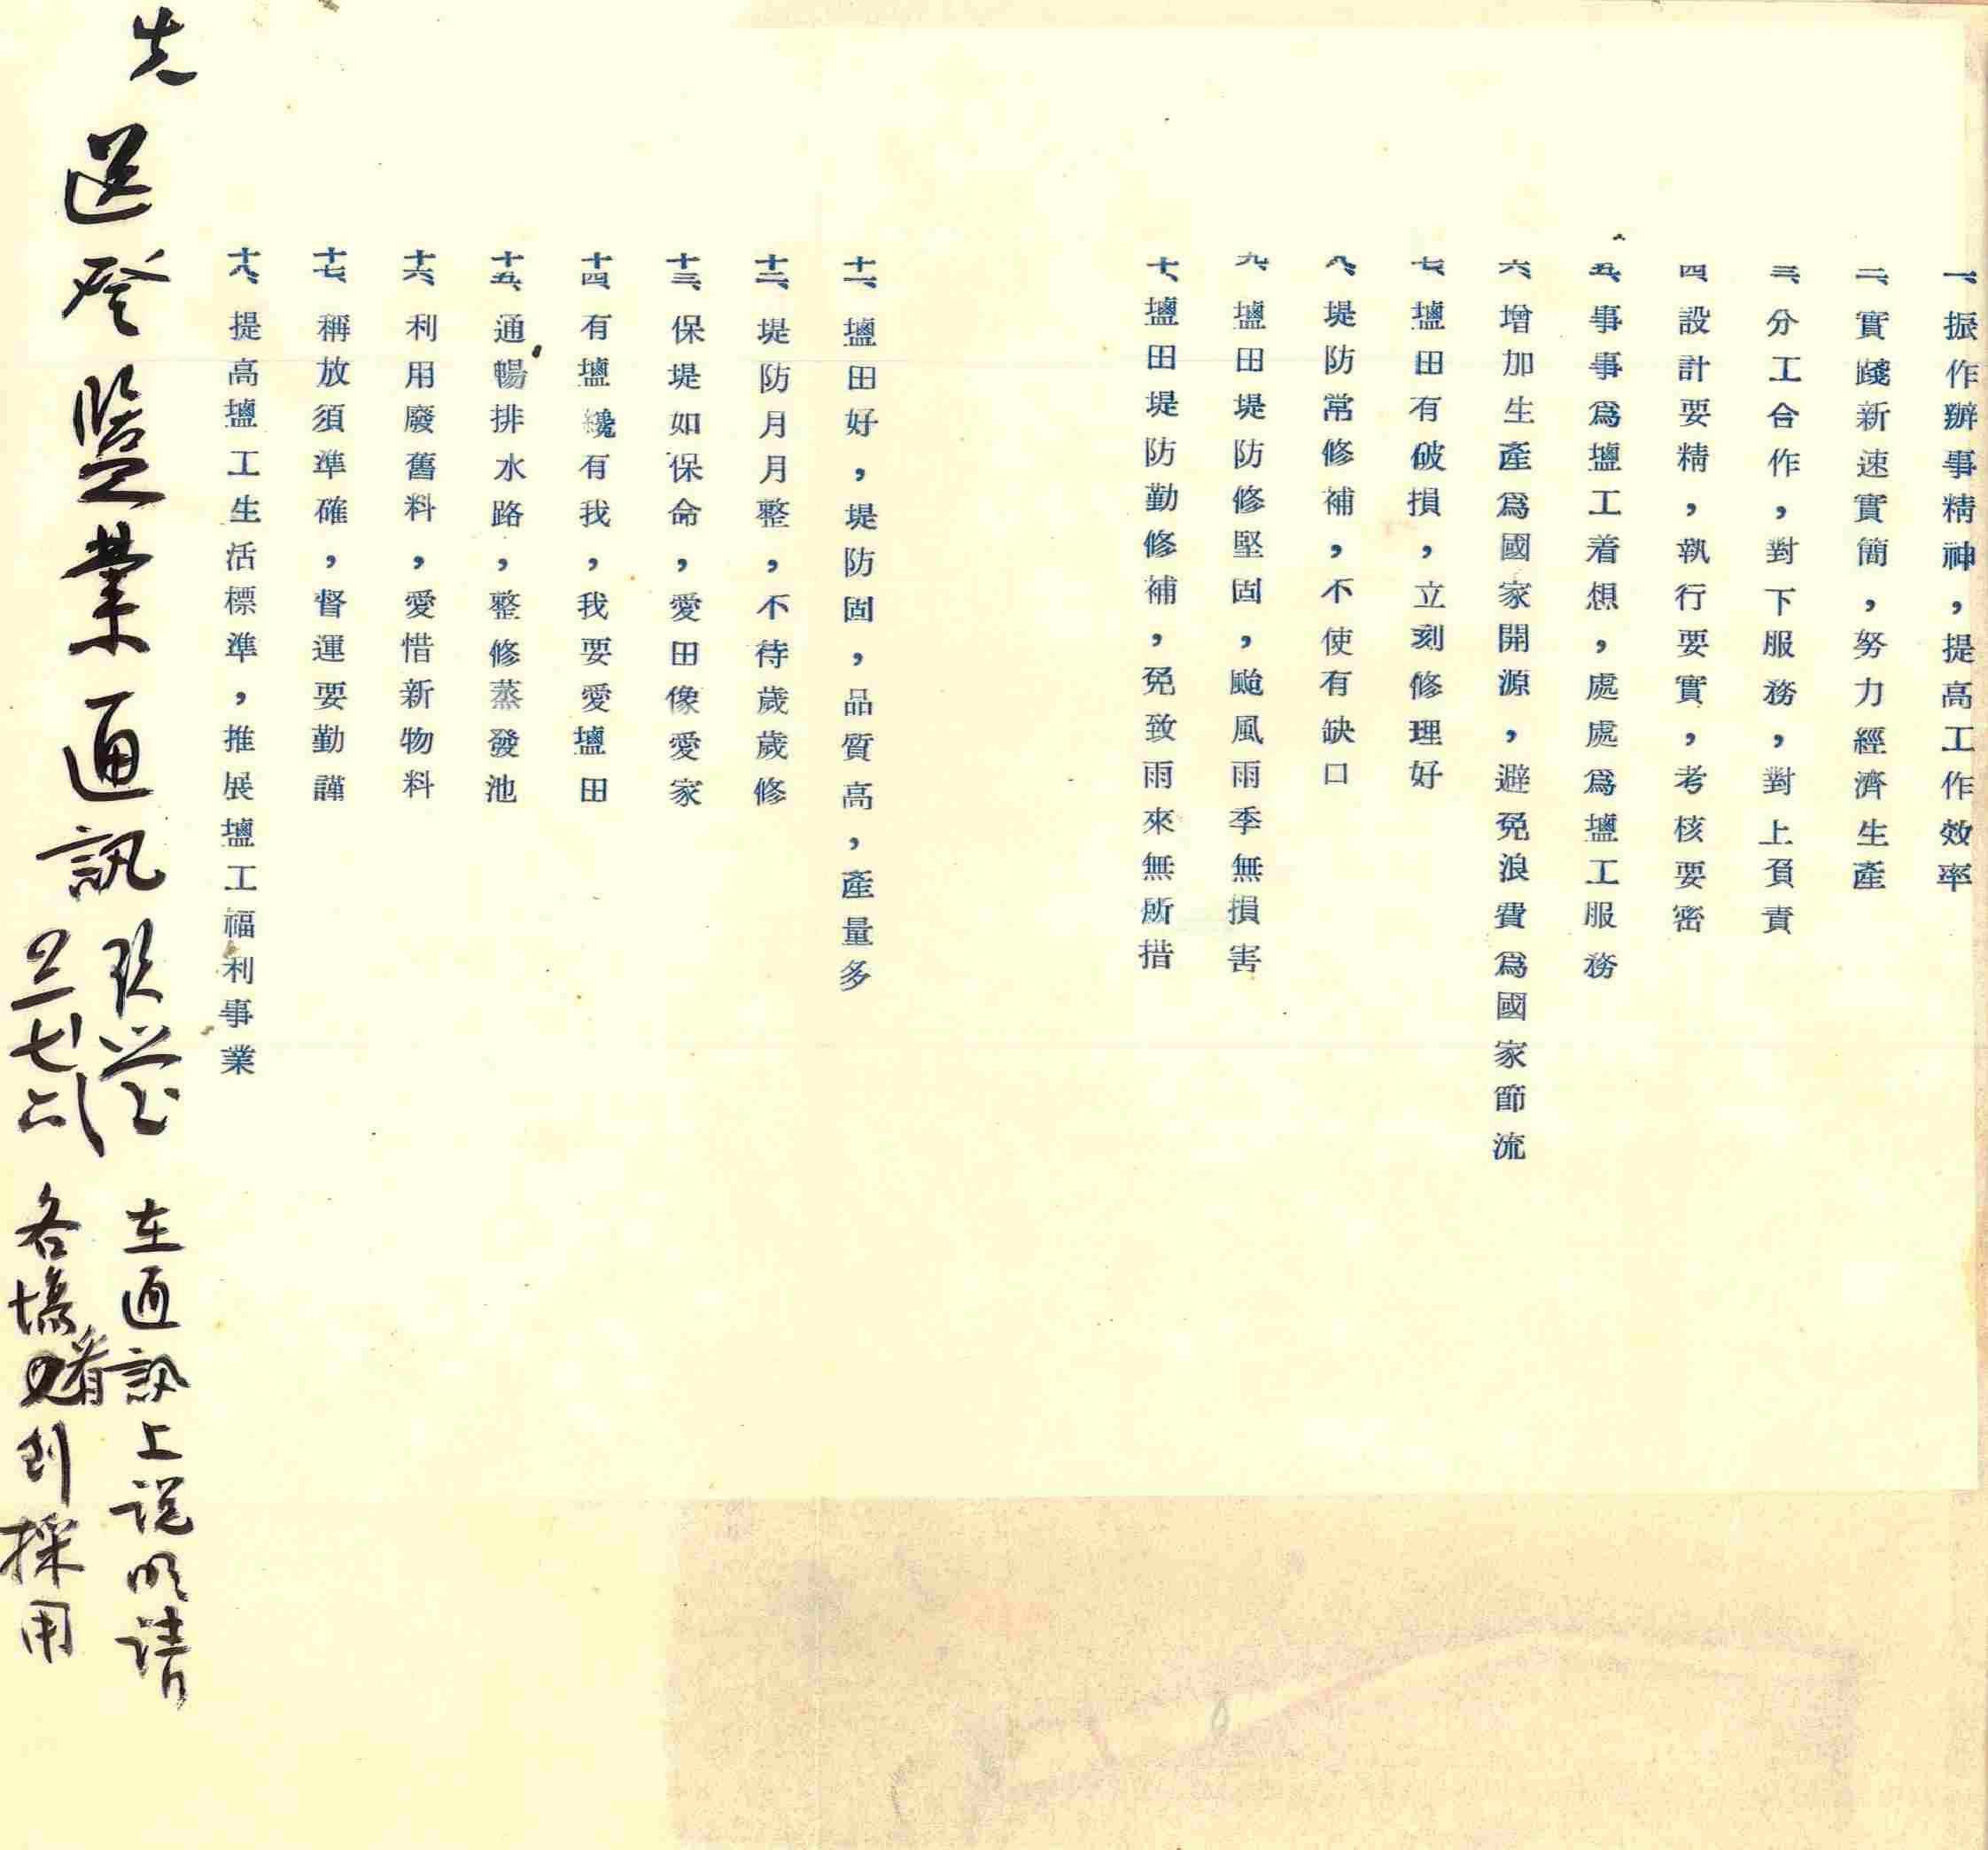 一、振作辦事精神，提高工作效率
二、實踐新速實簡，努力經濟生產
三、分工合作，對下服務，對上負責
四、設計要精，執行要實，考核要密
五、事事爲塩工着想，處處爲塩工服務
六、增加生產爲國家開源，避免浪費爲國家節流
七、塩田有破損，立刻修理好
八、堤防常修補，不使有缺口
九、塩田堤防修堅固，颱風雨季無損害
十、塩田堤防勤修補，免致雨來無所措
十一、塩田好，堤防固，品質高，產量多
十二、堤防月月整，不待歲歲修
十三、保堤如保命，愛田像愛家
十四、有塩纔有我，我要愛塩田
十五、通暢排水路，整修蒸發池
十六、利用廢舊料，愛惜新物料
十七、稱放須準確，督運要勤謹
十八、提高塩工生活標準，推展塩工福利事業
先送登盐業通訊
在通訊上说明請
各場看到採用